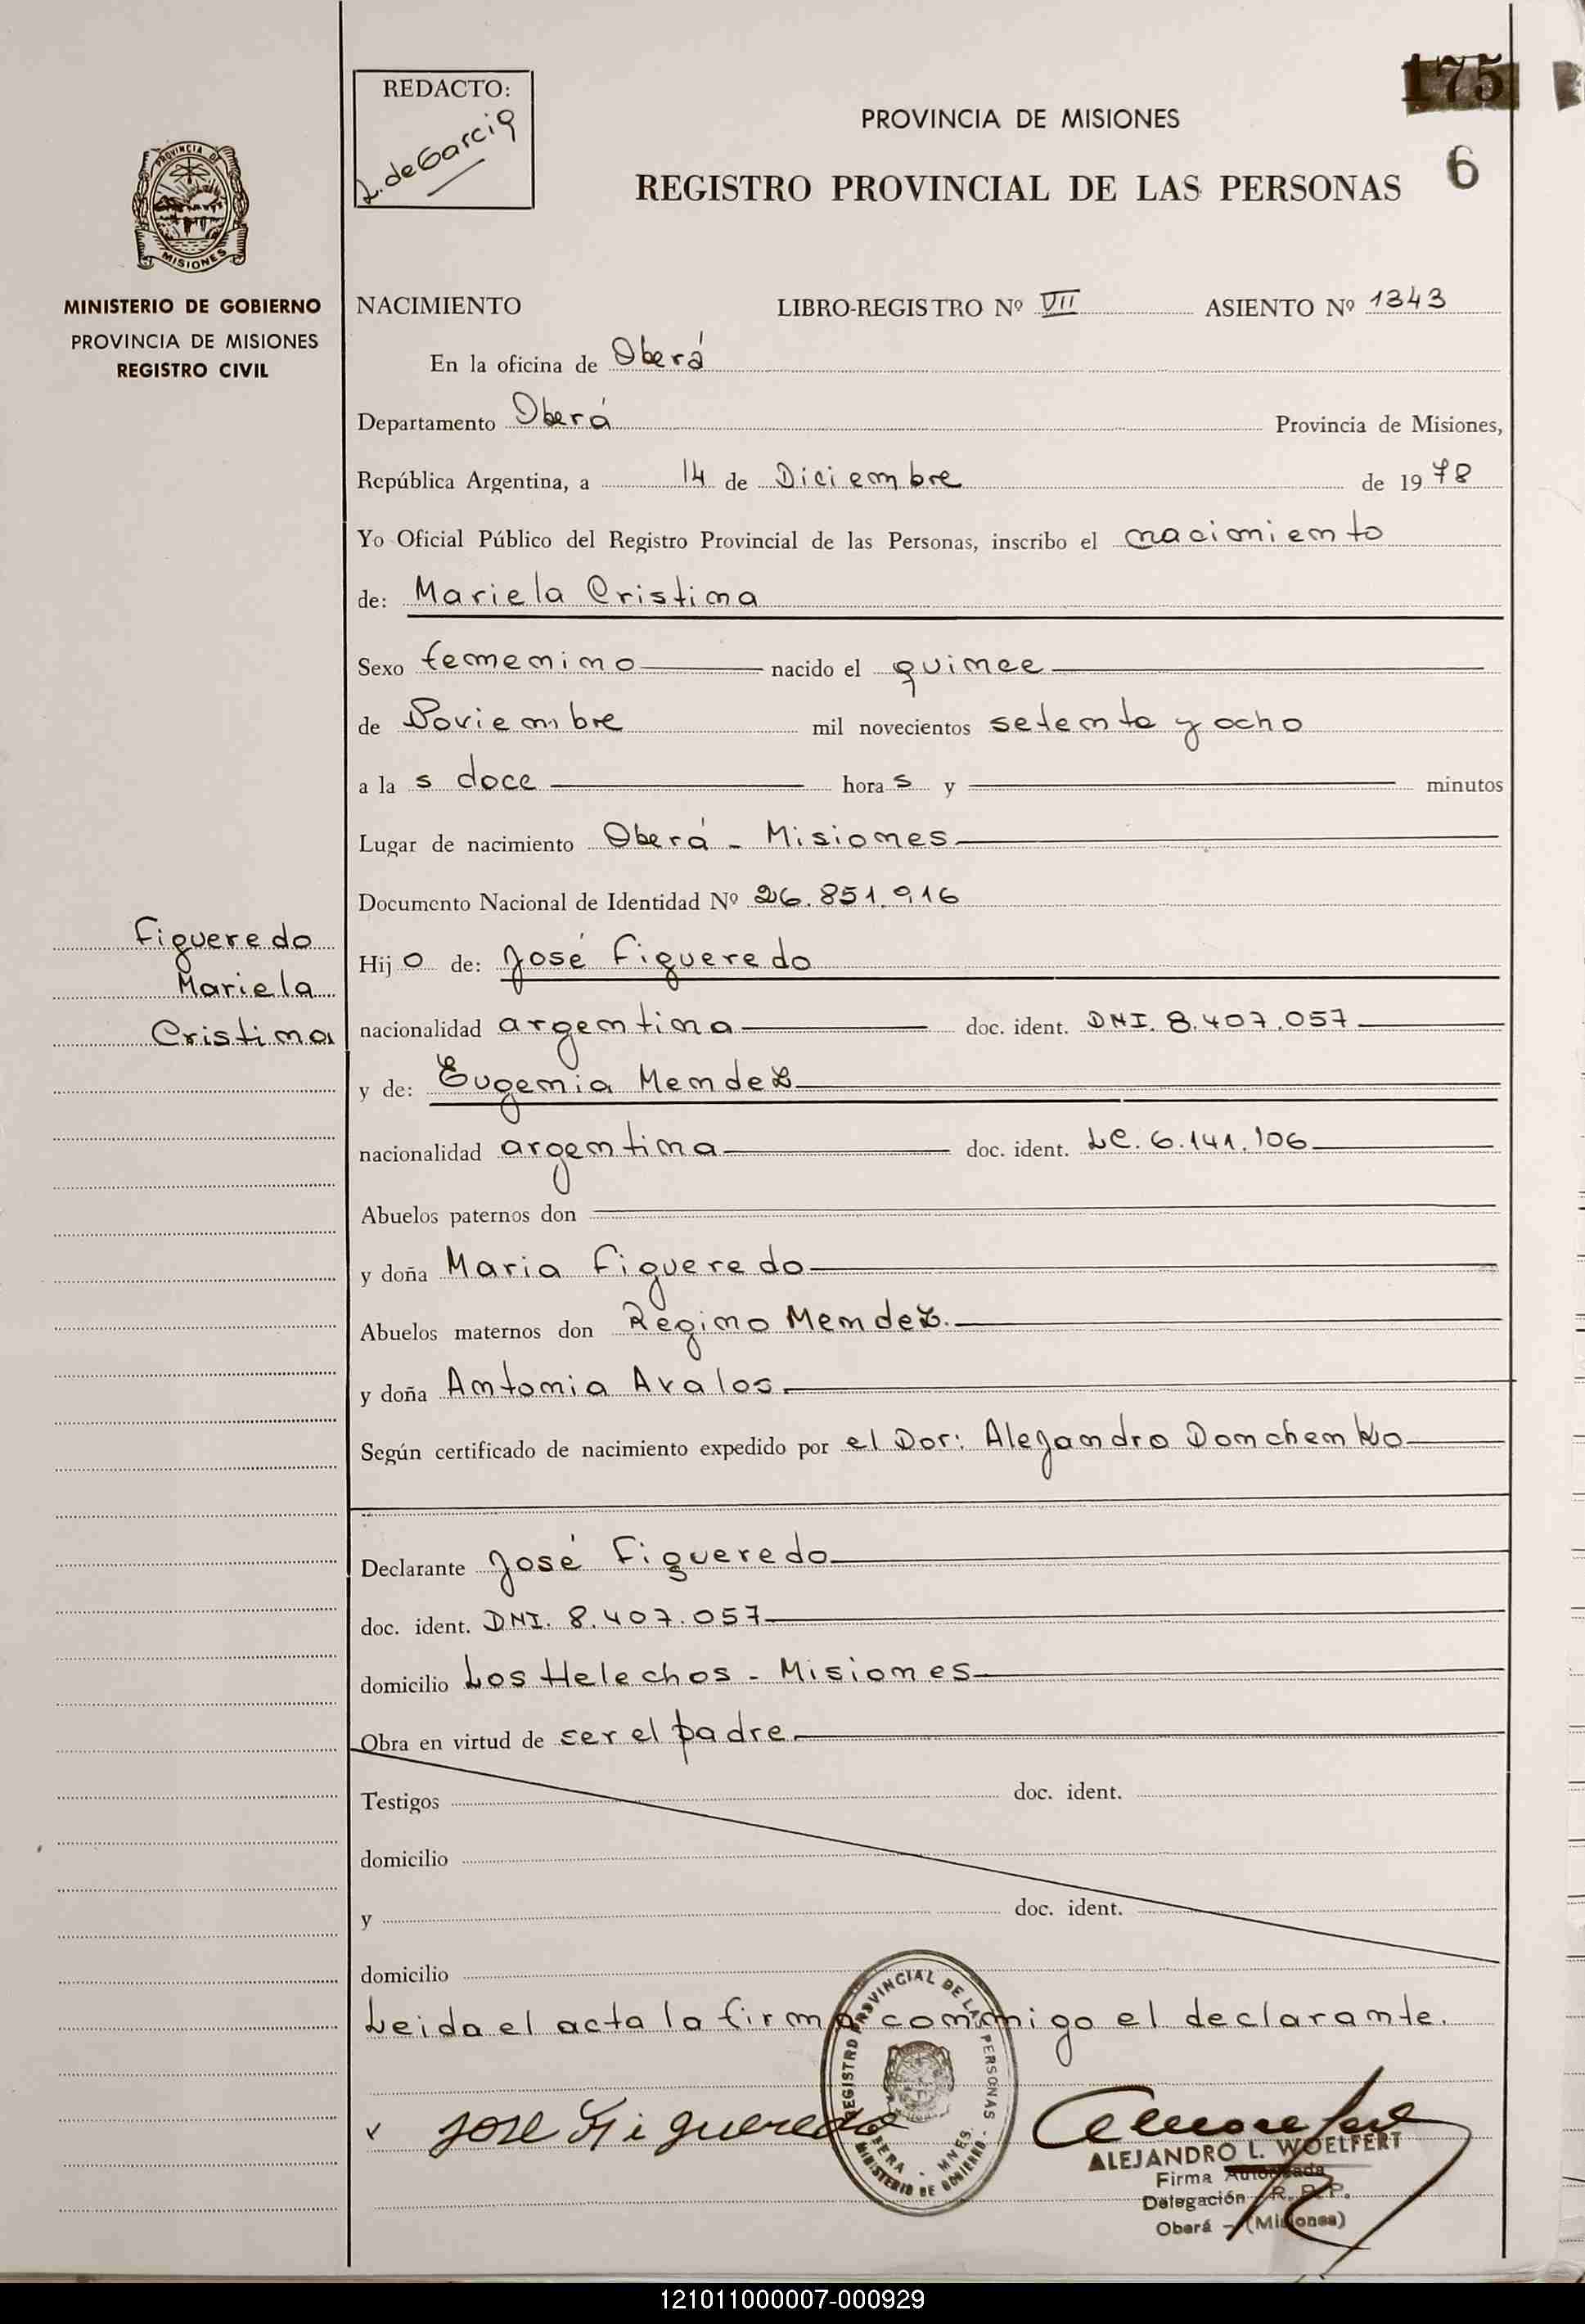 REDACTO:
L. de Garcia
175
PROVINCIA DE MISIONES
6
REGISTRO PROVINCIAL DE LAS PERSONAS
PROVINCIA DE
MISIONES
MINISTERIO DE GOBIERNO
PROVINCIA DE MISIONES
REGISTRO CIVIL
NACIMIENTO LIBRO-REGISTRO Nº VII ASIENTO Nº 1343
En la oficina de Oberá
Departamento Oberá Provincia de Misiones,
República Argentina, a 14 de Diciembre de 1978
Yo Oficial Público del Registro Provincial de las Personas, inscribo el nacimiento
de: Mariela Cristina
Sexo femenino nacido el quince
de Noviembre mil novecientos setenta y ocho
a la s doce hora s y minutos
Lugar de nacimiento Oberá - Misiones
Documento Nacional de Identidad Nº 26.851.916
Figueredo
Mariela
Cristina
Hijo de: José Figueredo
nacionalidad argentina doc. ident. DNI. 8.407.057
y de: Eugenia Mendez
nacionalidad argentina doc. ident. LC. 6.141.106
Abuelos paternos don
y doña Maria Figueredo
Abuelos maternos don Regino Mendez.
y doña Antonia Avalos
Según certificado de nacimiento expedido por el Dor: Alejandro Donchenko
Declarante José Figueredo
doc. ident. DNI. 8.407.057
domicilio Los Helechos - Misiones
Obra en virtud de ser el padre
Testigos doc. ident.
domicilio
y doc. ident.
domicilio
Leida el acta la firma conmigo el declarante.
REGISTRO PROVINCIAL DE LAS PERSONAS
OBERA - MNES.
MINISTERIO DE GOBIERNO
Jose Figueredo
ALEJANDRO L. WOELFERT
Firma Autorizada
Delegación R. P. P.
Oberá - (Misiones)
121011000007-000929